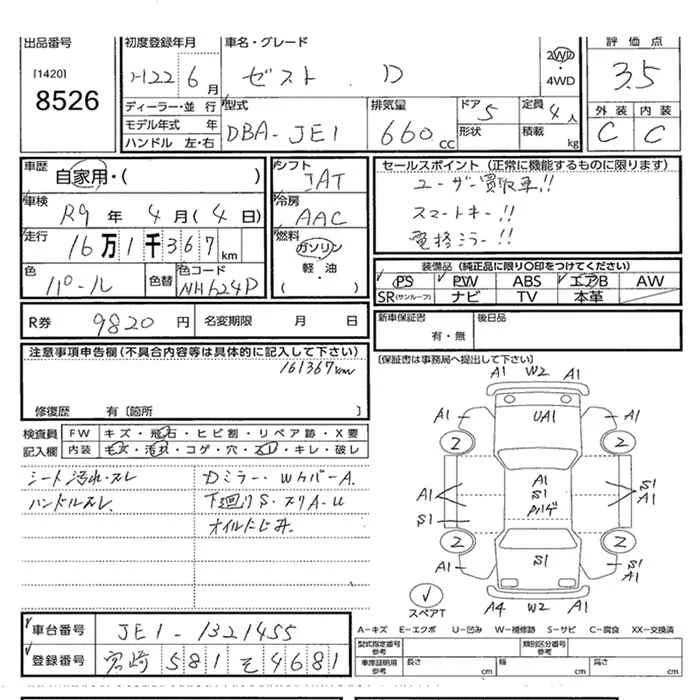 出品番号
[1420]
8526
初度登録年月
H22 6 月
車名・グレード
ゼスト D
2WD
・
4WD
評価点
3.5
ディーラー・並行
モデル年式 年
ハンドル 左・右
型式
DBA-JE1
排気量
660 cc
ドア
5
形状
定員
4 人
積載
kg
外装 内装
C C
車歴
自家用・( )
車検
R9 年 4 月 ( 4 日)
走行
16 万 1 千 3 6 7 km
色
パール
色替
色コード
NH624P
シフト
IAT
冷房
AAC
燃料
ガソリン
・
軽・油
( )
セールスポイント (正常に機能するものに限ります)
ユーザー買取車!!
スマートキー!!
電格ミラー!!
装備品 (純正品に限り〇印をつけてください)
PS PW ABS エアB AW
SR(サンルーフ) ナビ TV 本革
R券 9820 円 名変期限 月 日
新車保証書
有・無
後日品
注意事項申告欄(不具合内容等は具体的に記入して下さい)
161367km
修復歴 有〔箇所 〕
〔保証書は事務局へ提出して下さい〕
検査員 FW キズ・飛石・ヒビ割・リペア跡・X要
記入欄 内装 キズ・汚れ・コゲ・穴・スレ・キレ・破レ
シート汚れ・スレ
ハンドルスレ
Dミラー・WカバーA
下廻りS・スリA-U
オイルにじみ
A1 W2 A1
A1 UA1 A1
2 2
A1
A1 S1 S1
ハゲ A1
S1
2 2
A1 S1 S1
A1
スペアT
A4 W2 A1
A-キズ E-エクボ U-凹み W-補修跡 S-サビ C-腐食 XX-交換済
車台番号 JE1-1321455
登録番号 宮崎 581 そ 4681
型式指定番号
参考
類別区分番号
参考
車庫証明用
参考
長さ
cm
幅
cm
高さ
cm